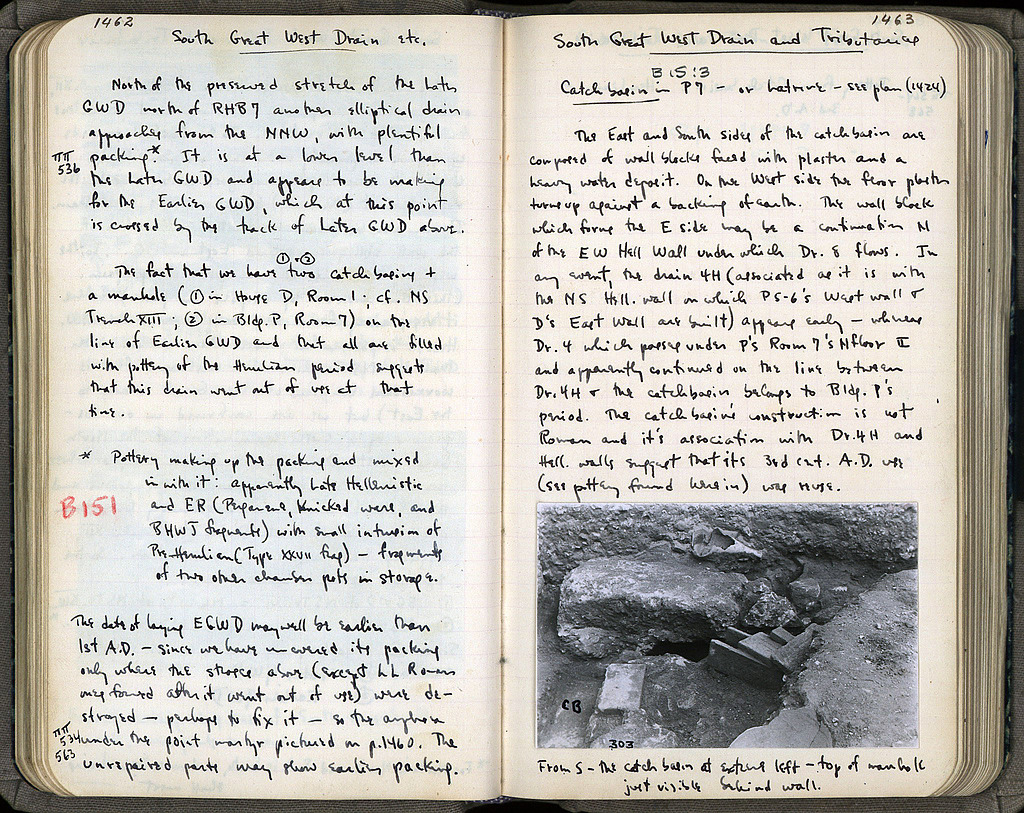 1462
South Great West Drain etc.
North of the preserved stretch of the Later
GWD north of RHB7 another elliptical drain
approaches from the NNW, with plentiful
packing.* It is at a lower level than
ΠΠ
536
the Later GWD and appears to be making
for the Earlier GWD, which at this point
is crossed by the track of Later GWD above.
The fact that we have two ① + ② catchbasins +
a manhole (① in House D, Room 1; cf. NS
Trench XIII; ② in Bldg. P, Room 7) on the
line of Earlier GWD and that all are filled
with pottery of the Herulian period suggests
that this drain went out of use at that
time.
* Pottery making up the packing and mixed
in with it: apparently Late Hellenistic
B151
and ER (Pergamene, Knicked ware, and
BHWJ fragments) with small intrusion of
Pre-Herulian (Type XXVII frag) – fragments
of two other chamber pots in storage.
The date of laying EGWD may well be earlier than
1st A.D. – since we have uncovered its packing
only where the stroses above (except LL Roman
ones formed after it went out of use) were de-
stroyed – perhaps to fix it – so the amphora
ΠΠ
534
563
under the point martyr pictured on p.1460. The
unrepaired parts may show earlier packing.
1463
South Great West Drain and Tributaries
B 15:3
Catchbasin in P7 – or latrine – see plan (1424)
The East and South sides of the catchbasin are
composed of wall blocks faced with plaster and a
heavy water deposit. On the West side the floor plaster
turns up against a backing of earth. The wall block
which forms the E side may be a continuation N
of the EW Hell Wall under which Dr. 8 flows. In
any event, the drain 4H (associated as it is with
the NS Hell. wall on which P5-6's West wall +
D's East Wall are built) appears early – whereas
Dr. 4 which passes under P's Room 7's N floor II
and apparently continued on the line between
Dr. 4H + the catchbasin belongs to Bldg. P's
period. The catchbasin's construction is not
Roman and it's association with Dr. 4H and
Hell. walls suggest that its 3rd cnt. A.D. use
(see pottery found herein) was reuse.
CB
303
From S – the catch basin at extreme left – top of manhole
just visible behind wall.